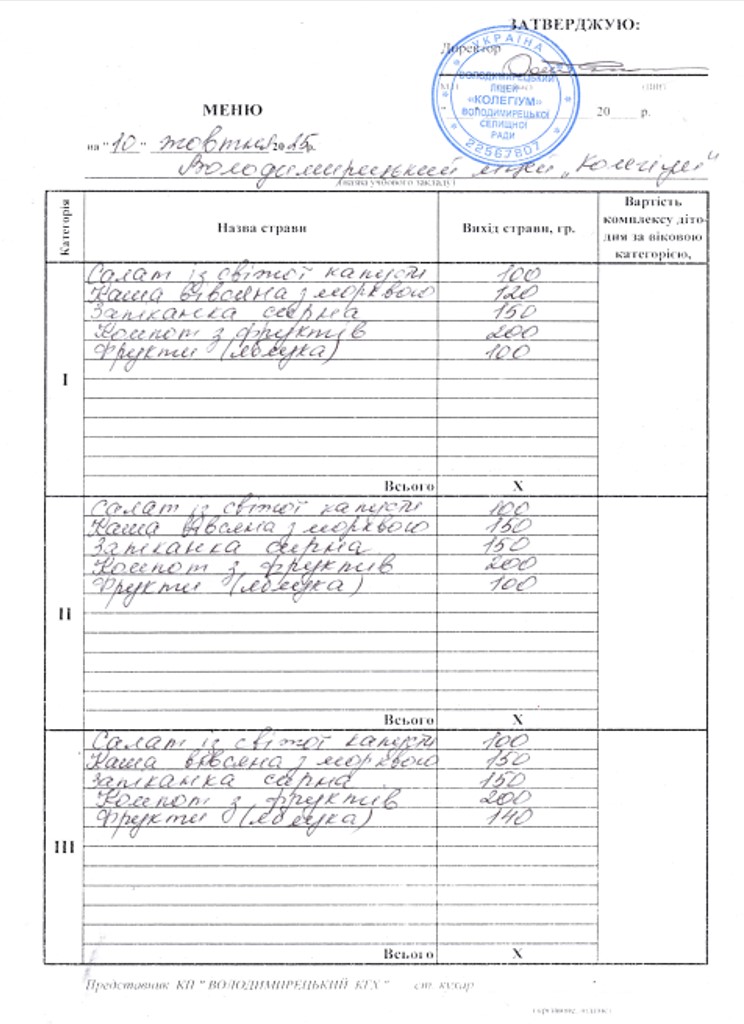 ЗАТВЕРДЖУЮ:
Директор
УКРАЇНА
ВОЛОДИМИРЕЦЬКИЙ
ЛІЦЕЙ
«КОЛЕГІУМ»
ВОЛОДИМИРЕЦЬКОЇ
СЕЛИЩНОЇ
РАДИ
22567807
20 р.
МЕНЮ
на " 10 " жовтня 2025р.
Володимирецький ліцей „Колегіум"
(назва учбового закладу)
Категорія Назва страви Вихід страви, гр. Вартість комплексу діто-дням за віковою категорією,
I
Салат із свіжої капусти 100
Каша вівсяна з морквою 120
Запіканка сирна 150
Компот з фруктів 200
Фрукти (яблука) 100
Всього X
II
Салат із свіжої капусти 100
Каша вівсяна з морквою 150
Запіканка сирна 150
Компот з фруктів 200
Фрукти (яблука) 100
Всього X
III
Салат із свіжої капусти 100
Каша вівсяна з морквою 150
Запіканка сирна 150
Компот з фруктів 200
Фрукти (яблука) 140
Всього X
Представник КП " ВОЛОДИМИРЕЦЬКИЙ КГХ " ст. кухар